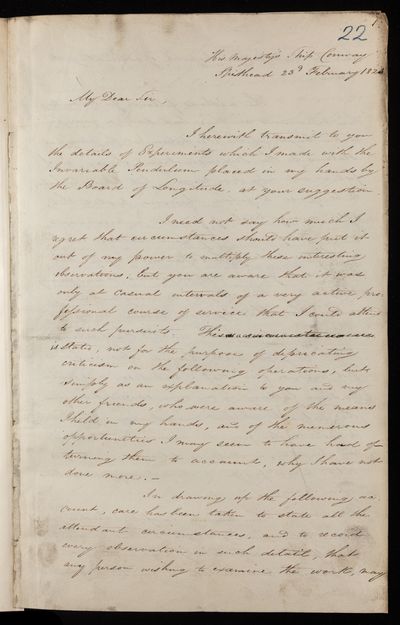 22
1
His Majesty's Ship Conway
Spithead 23d February 182
My Dear Sir,
I herewith transmit to you
the details of Experiments which I made with the
Invariable Pendulum placed in my hands by
the Board of Longitude, at your suggestion
I need not say how much I
regret that circumstances should have put it
out of my power to multiply these interesting
observations, but you are aware that it was
only at casual intervals of a very active pro-
fessional course of service that I could attend
to such pursuits. This
is stated, not for the purpose of depricating
criticism on the following operations, but
simply as an explanation to you and my
other friends, who were aware of the means
I held in my hands, and of the numerous
opportunities I may seem to have had of
turning them to account, why I have not
done more. —
In drawing up the following ac-
count, care has been taken to state all the
attendant circumstances, and to record
every observation in such detail, that
any person wishing to examine the work, may